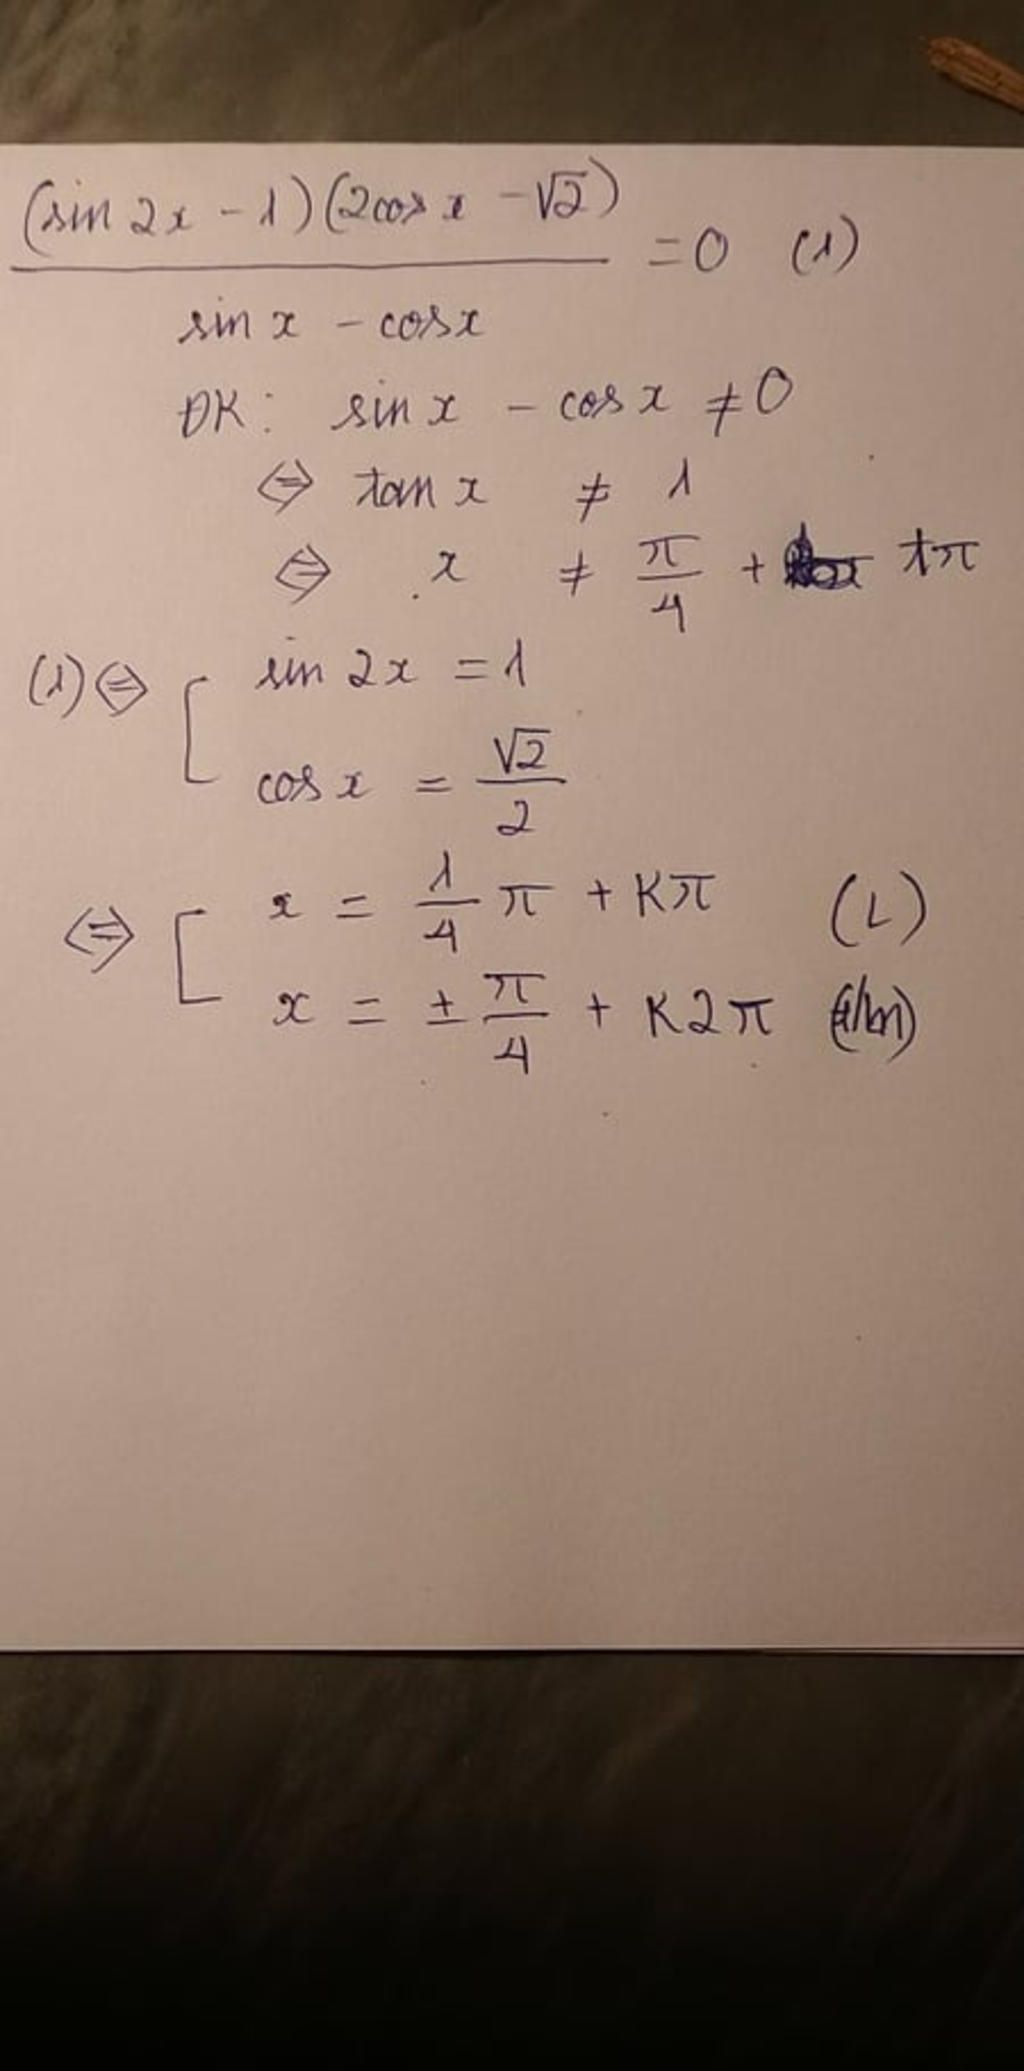 (sin 2x - 1)(2cos x - √2)
= 0 (1)
sin x - cos x
ĐK: sin x - cos x ≠ 0
⇔ tan x ≠ 1
⇔ x ≠ π/4 + tπ
(1) ⇔ [ sin 2x = 1
cos x = √2/2
⇔ [ x = 1/4 π + Kπ (L)
x = ± π/4 + K2π (t/m)